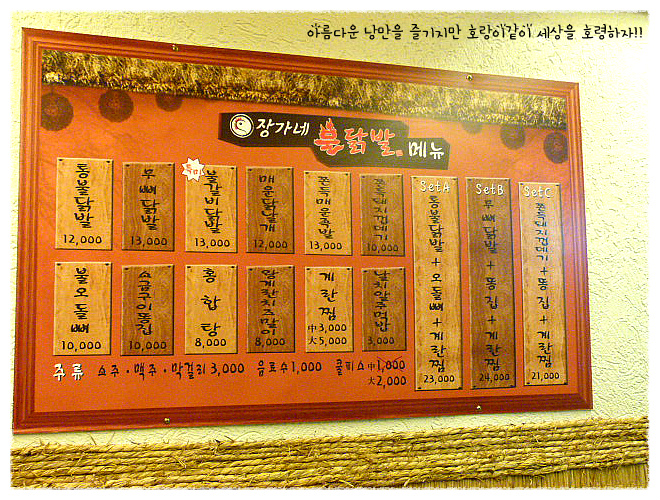 아름다운 낭만을 즐기지만 호랑이같이 세상을 호령하자!!
장가네 불닭발 메뉴
통불닭발
12,000
무뼈닭발
13,000
불갈비닭발
13,000
매운닭날개
12,000
쫀득매운족발
13,000
쫀득돼지껍데기
10,000
불오돌뼈
10,000
소금구이똥집
10,000
홍합탕
8,000
왕계란치즈말이
8,000
계란찜
中3,000
大5,000
날치알주먹밥
3,000
SetA
통불닭발+오돌뼈+계란찜
23,000
SetB
무뼈닭발+똥집+계란찜
24,000
SetC
쫀득돼지껍데기+똥집+계란찜
21,000
주류 소주·맥주·막걸리 3,000 음료수 1,000 쿨피스 中1,000
大2,000